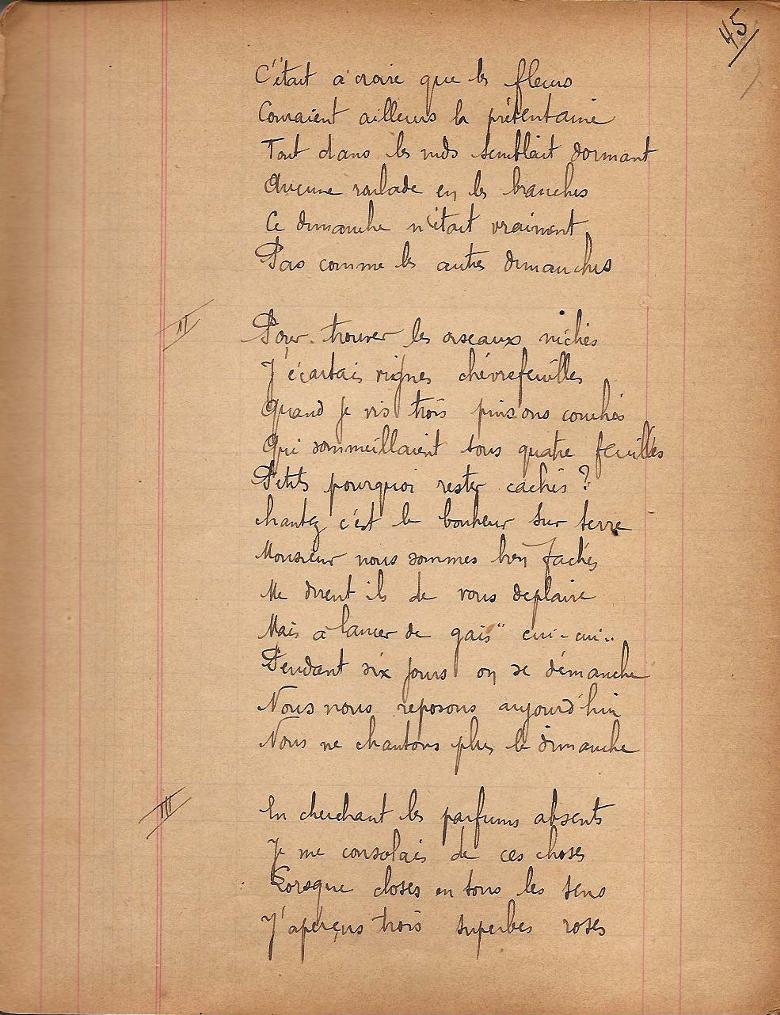 45
C'était à croire que les fleurs
Couraient ailleurs la prétentaine
Tout dans les nids semblait dormant
Aucune roulade en les branches
Ce dimanche n'était vraiment
Pas comme les autres dimanches
II
Pour trouver les oiseaux nichés
J'écartais vignes chèvrefeuilles
Quand je vis trois pinsons couchés
Qui sommeillaient sous quatre feuilles
Petits pourquoi rester cachés ?
chantez c'est le bonheur sur terre
Monsieur nous sommes bien fachés
Me dirent ils de vous deplaire
Mais à lancer de gais " cui-cui..
Pendant six jours on se démanche
Nous nous reposons aujourd'hui
Nous ne chantons plus le dimanche
III
En cherchant les parfums absents
Je me consolais de ces choses
Lorsque closes en tous les sens
J'aperçus trois superbes roses